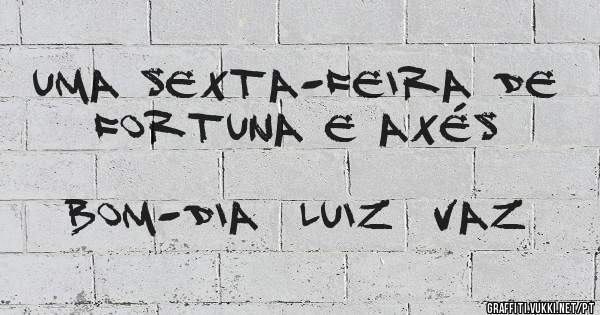 UMA SEXTA-FEIRA DE
FORTUNA E AXÉS
BOM-DIA LUIZ VAZ
GRAFFITI.YUKKI.NET/PT